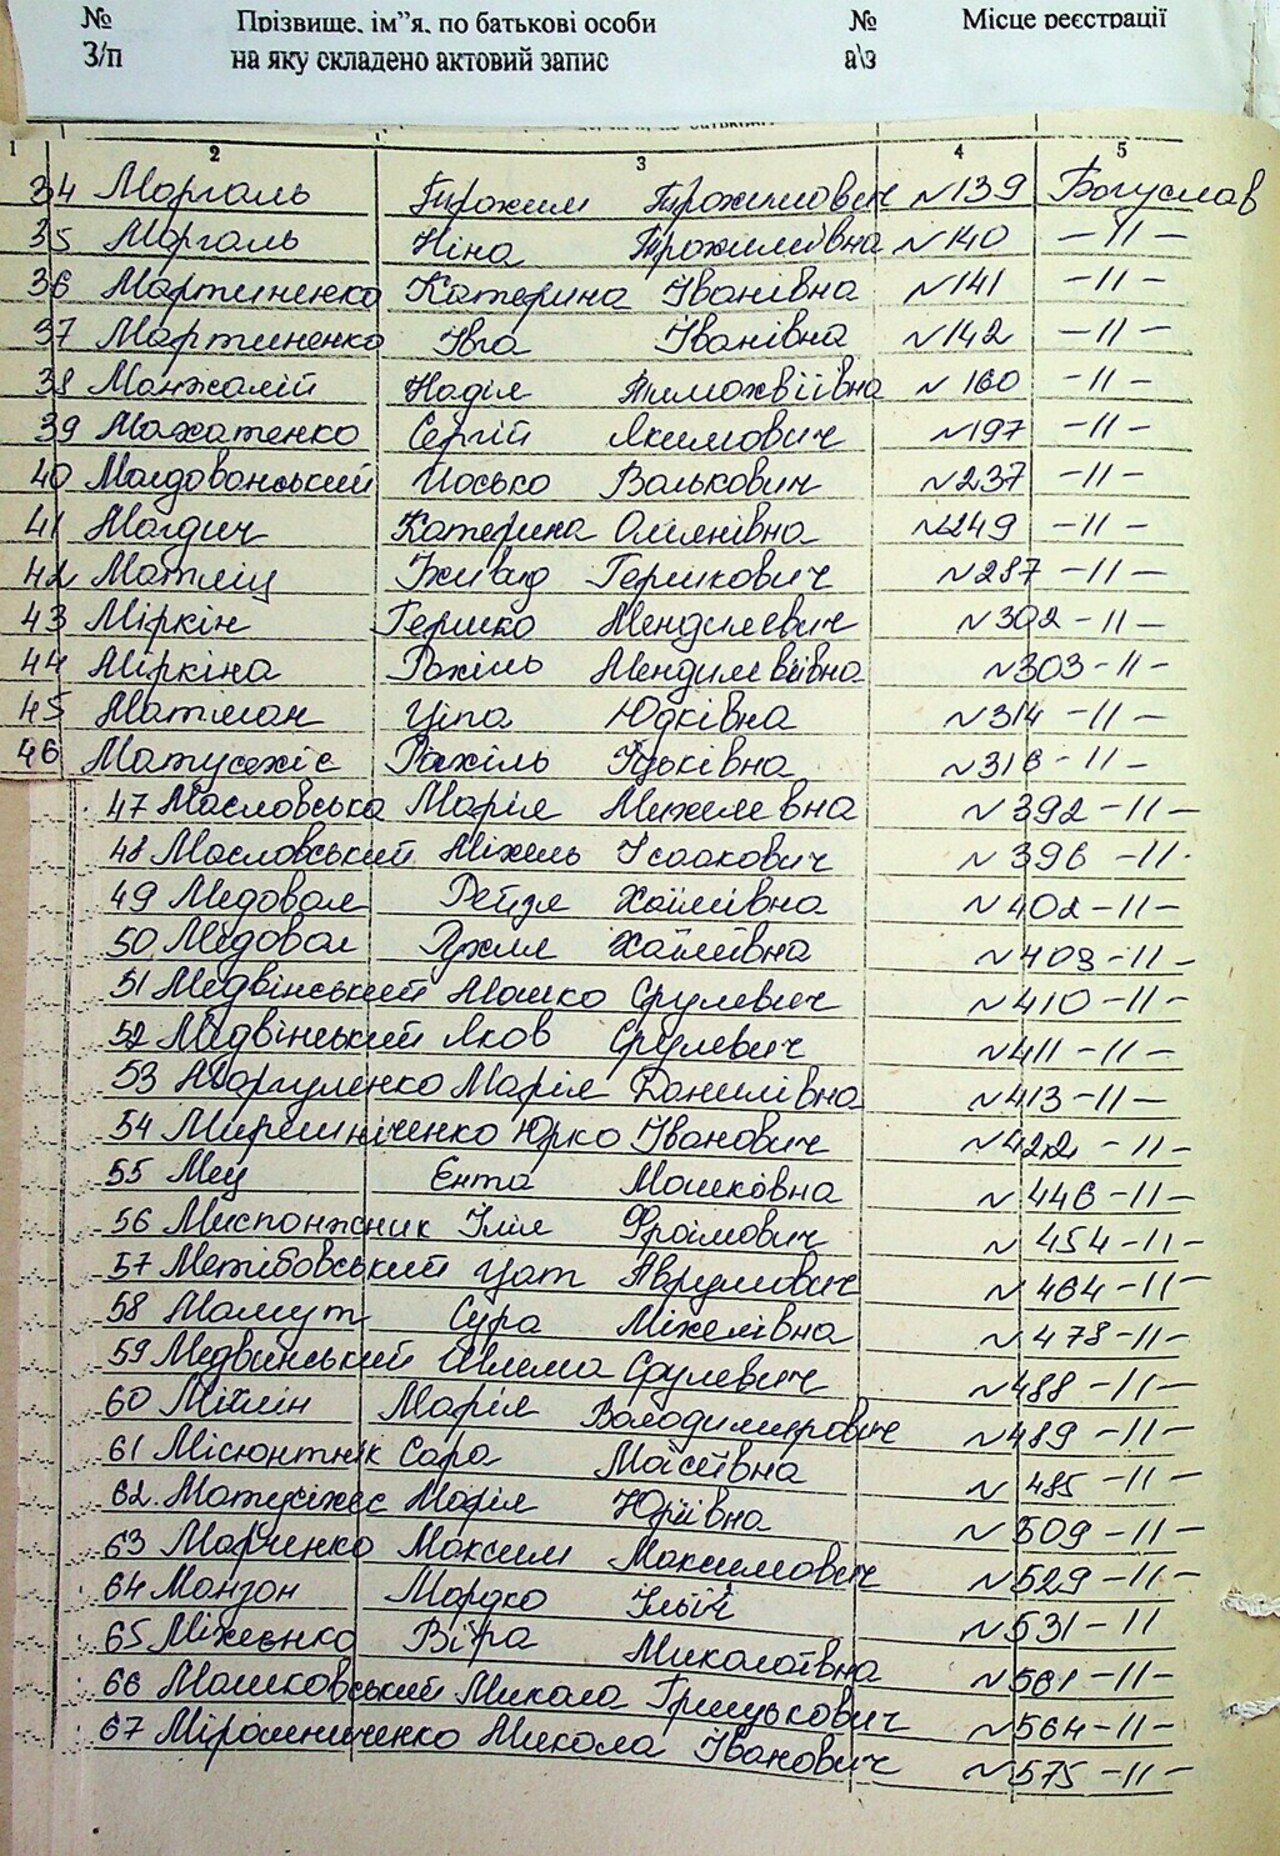 № Прізвище, ім”я, по батькові особи № Місце реєстрації
З/п на яку складено актовий запис а\з
1 2 3 4 5
34 Моргаль Трохим Трохимович №139 Богуслав
35 Моргаль Ніна Трохимівна №140 -11-
36 Мартиненко Катерина Іванівна №141 -11-
37 Мартиненко Івга Іванівна №142 -11-
38 Манжалій Надія Тимохвіївна №160 -11-
39 Махатенко Сергій Якимович №197 -11-
40 Молдованський Иосько Волькович №237 -11-
41 Магдич Катерина Омелянівна №249 -11-
42 Матлиц Гершкович №287 -11-
43 Міркін Гершко Мендилевич №302 -11-
44 Міркіна Рахіль Мендилевівна №303 -11-
45 Матман Ципа Юдківна №314 -11-
46 Матусехіс Рахіль Іцьківна №316 -11-
47 Масловська Марія Михелевна №392 -11-
48 Масловський Міхель Ісаакович №396 -11-
49 Медовая Рейзя Хаїмівна №402 -11-
50 Медовая Рухля Хаїмівна №403 -11-
51 Медвінський Мошко Срулевич №410 -11-
52 Медвінський Яков Срулевич №411 -11-
53 Моргуленко Марія Данилівна №413 -11-
54 Мирошніченко Юрко Іванович №422 -11-
55 Мец Єнта Мошковна №446 -11-
56 Миспонжник Ілія Фроімович №454 -11-
57 Метібовський Аврумович №464 -11-
58 Мамут Сура Міхелівна №478 -11-
59 Медвинський Шлема Срулевич №488 -11-
60 Марія Володимирович №489 -11-
61 Місюнтнік Сара Моісеївна №485 -11-
62. Матусіхес Марія Юріївна №509 -11-
63 Марченко Максим Максимович №529 -11-
64 Манзон Мордко Ільїч №531 -11
65 Міхеєнко Віра Миколаївна №561 -11-
66 Машковський Микола Грицькович №564 -11-
67 Мірошниченко Микола Іванович №575 -11-